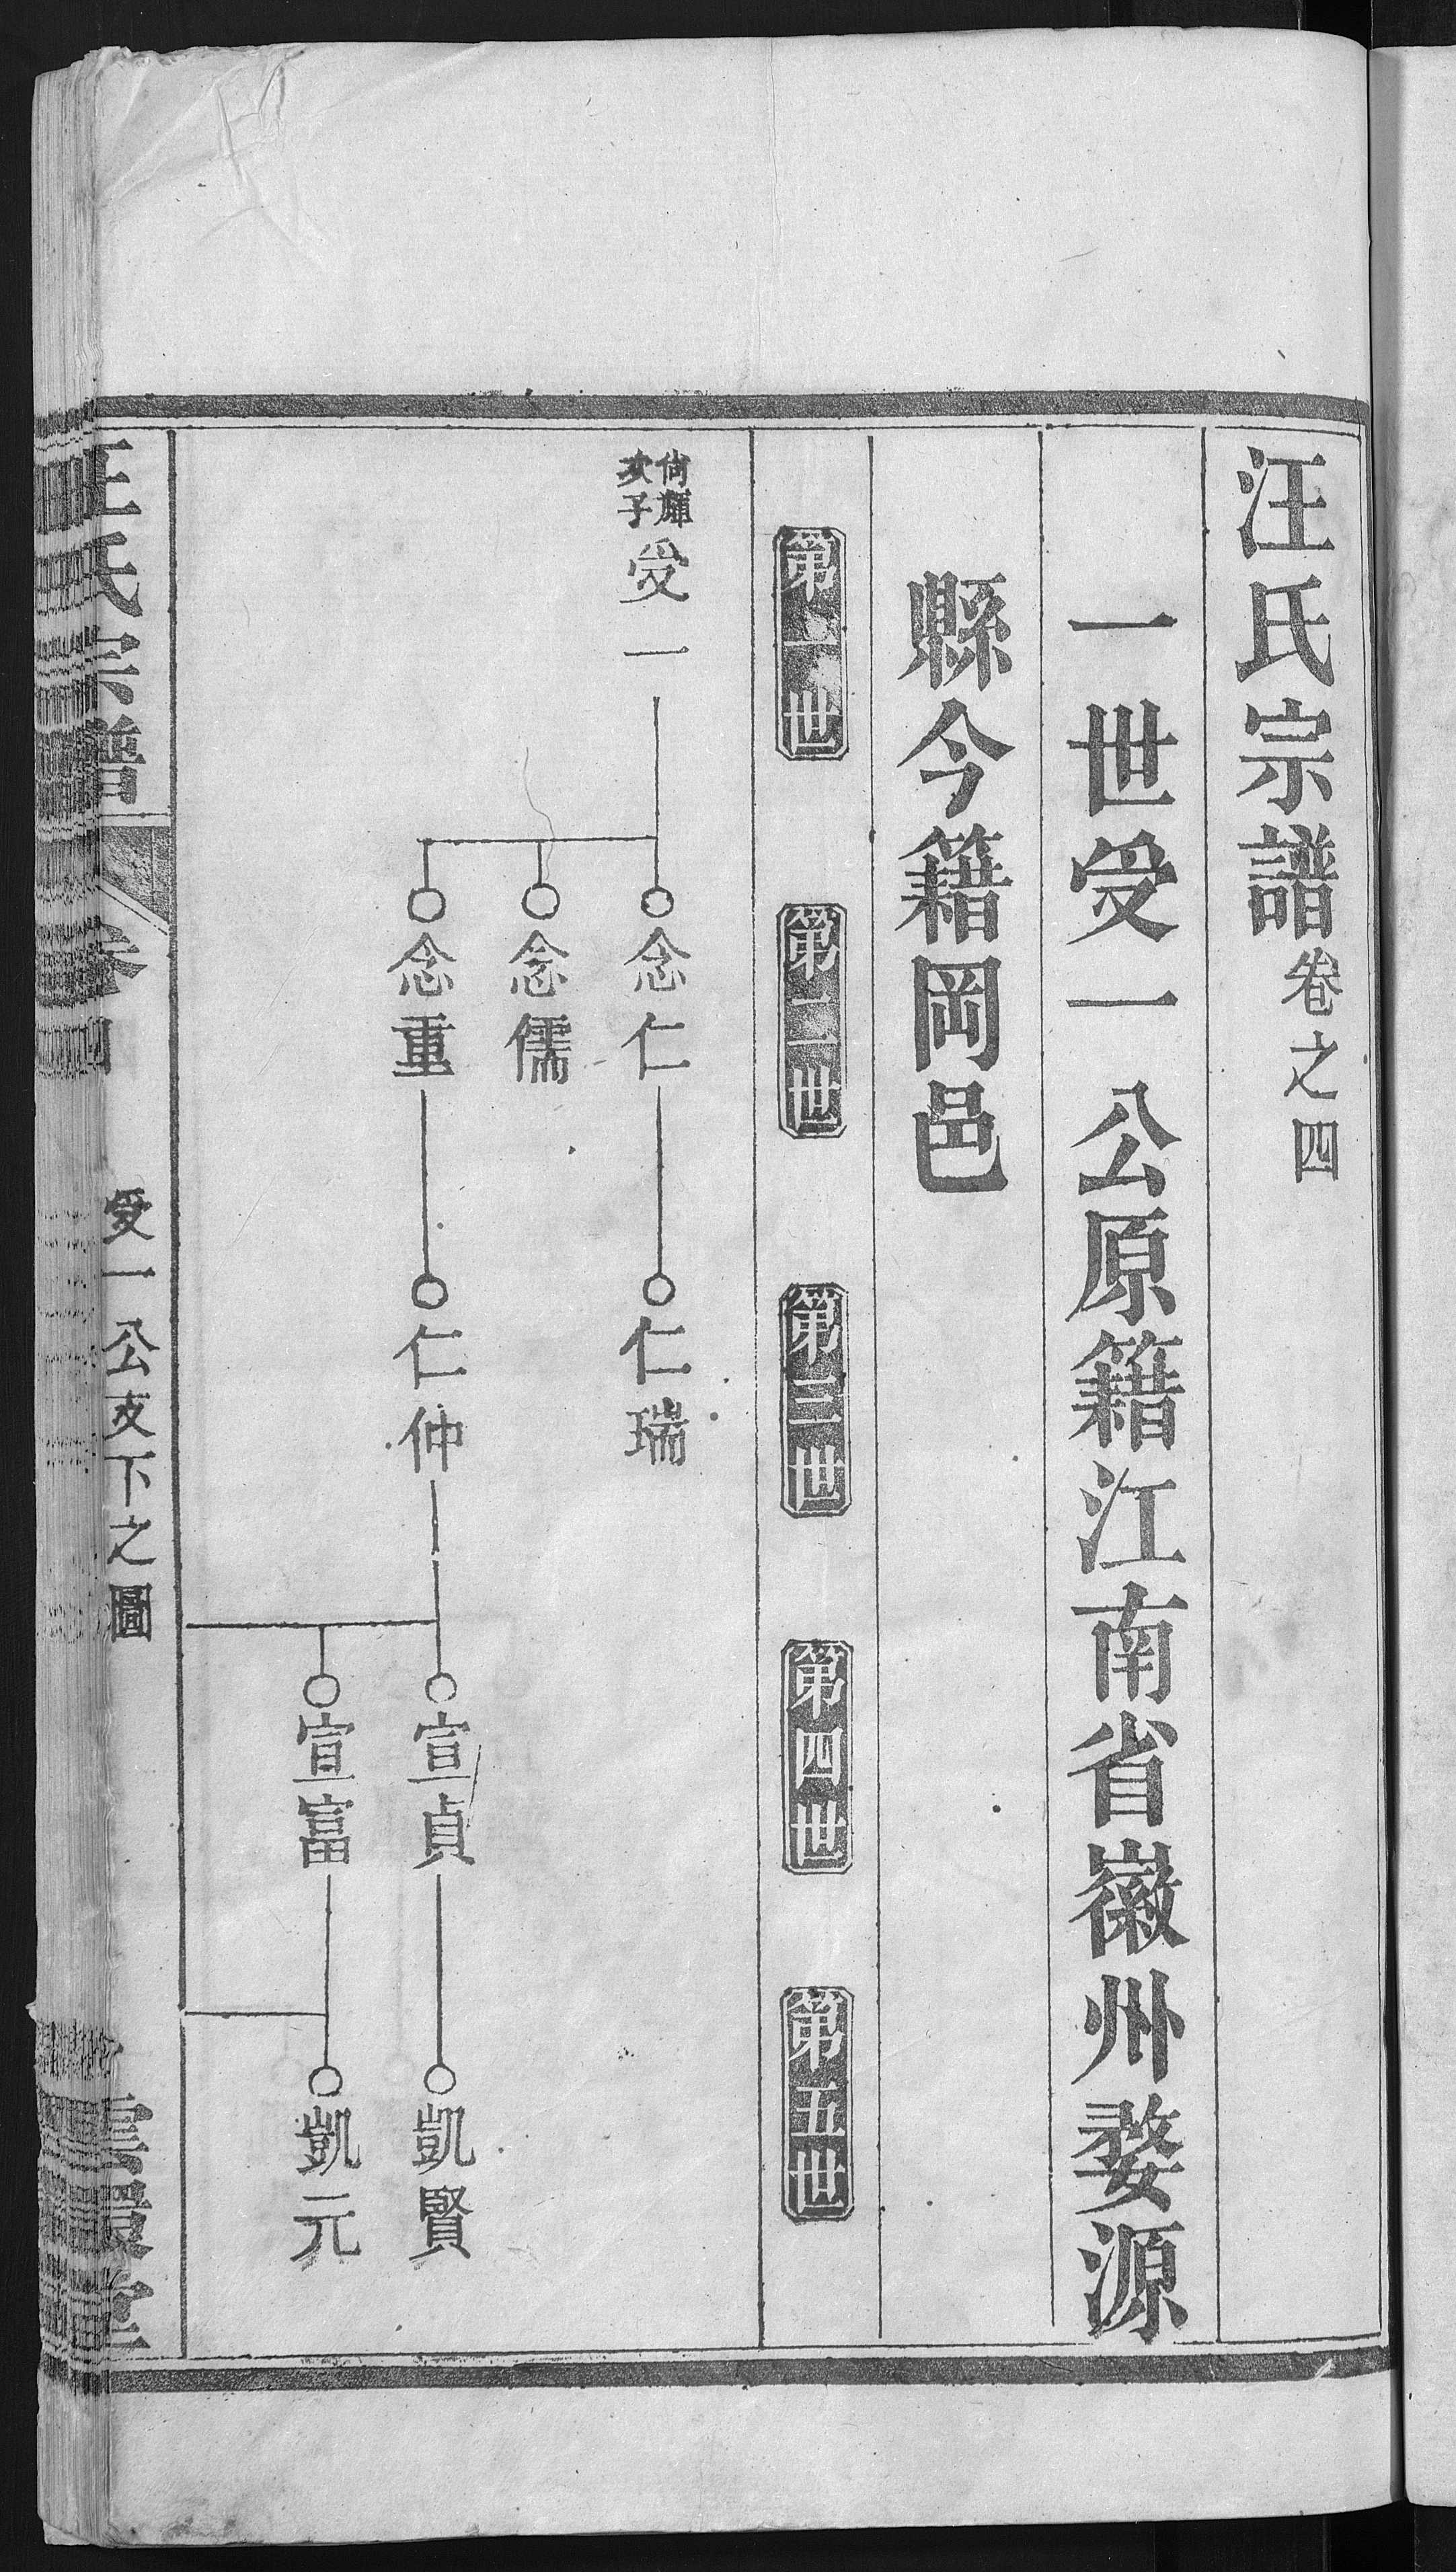 汪氏宗譜卷之四
一世受一公原籍江南省徽州婺源
縣今籍岡邑
第一世
第二世
第三世
第四世
第五世
尚輝
次子
受一
念仁
念儒
念重
仁瑞
仁仲
宣貞
宣富
凱賢
凱元
汪氏宗譜
卷四
受一公支下之圖